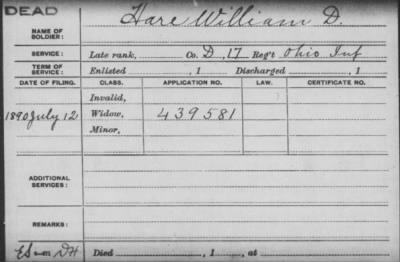 DEAD
NAME OF SOLDIER: Hare William D.
SERVICE: Late rank, Co. D, 17 Reg't Ohio Inf
TERM OF SERVICE: Enlisted , 1 Discharged , 1
DATE OF FILING. CLASS. APPLICATION NO. LAW. CERTIFICATE NO.
Invalid,
1890 July 12 Widow, 439581
Minor,
ADDITIONAL SERVICES:
REMARKS:
Died , 1 , at